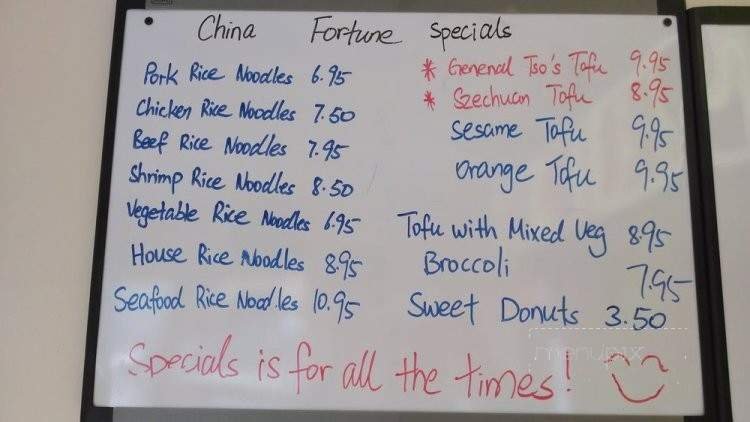 China Fortune Specials
Pork Rice Noodles 6.95
Chicken Rice Noodles 7.50
Beef Rice Noodles 7.95
Shrimp Rice Noodles 8.50
Vegetable Rice Noodles 6.95
House Rice Noodles 8.95
Seafood Rice Noodles 10.95
* General Tso's Tofu 9.95
* Szechuan Tofu 8.95
Sesame Tofu 9.95
Orange Tofu 9.95
Tofu with Mixed Veg 8.95
Broccoli 7.95
Sweet Donuts 3.50
menupix
Specials is for all the times!